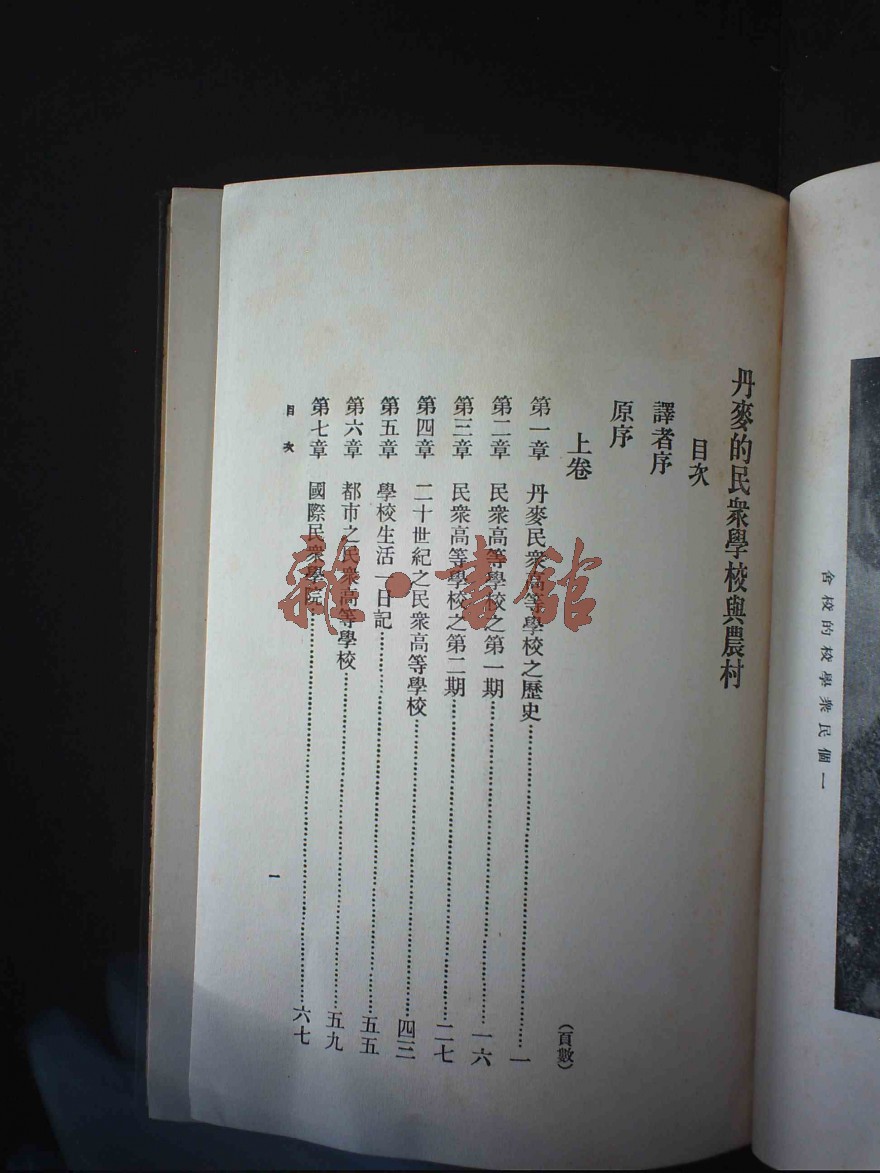 丹麥的民衆學校與農村
目次
譯者序
原序
上卷
(頁數)
第一章 丹麥民衆高等學校之歷史……一
第二章 民衆高等學校之第一期……一六
第三章 民衆高等學校之第二期……二七
第四章 二十世紀之民衆高等學校……四三
第五章 學校生活一日記……五五
第六章 都市之民衆高等學校……五九
第七章 國際民衆學院……六七
目次
一
一個民衆學校的校舍
雜·書館